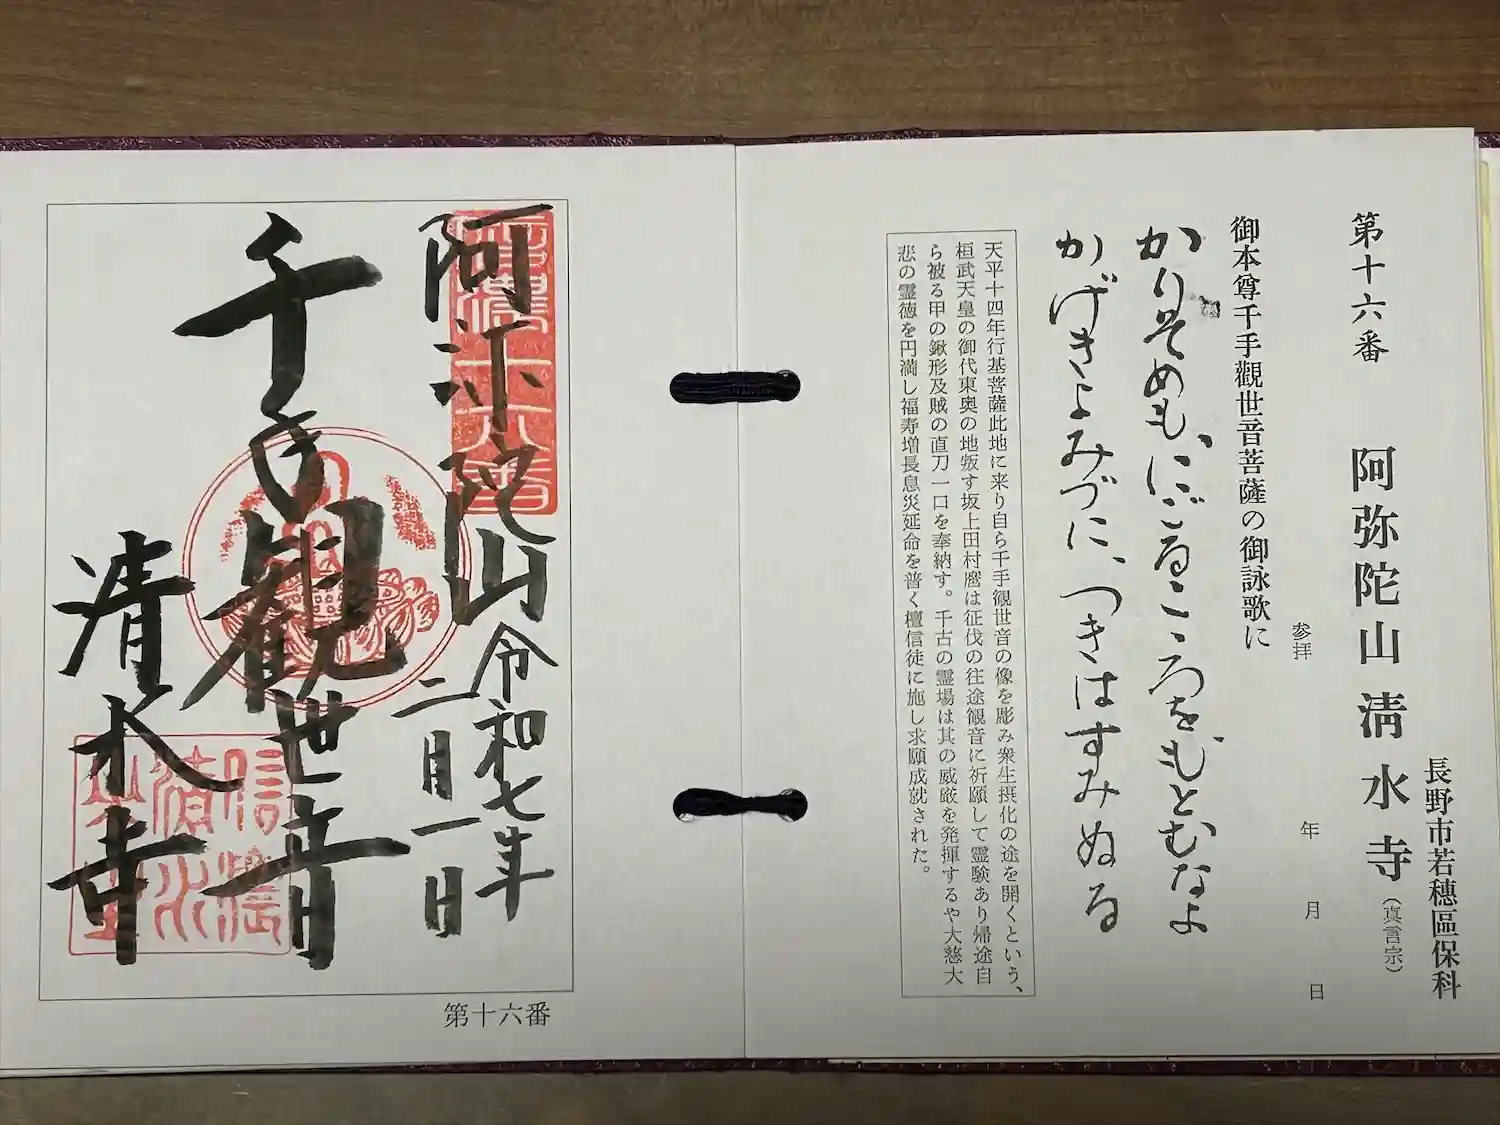 第十六番 阿弥陀山清水寺(真言宗)
長野市若穂區保科
参拝 年 月 日
御本尊千手觀世音菩薩の御詠歌に
かりそめも、にごるこゝろをもとむなよ
かげきよみづに、つきはすみぬる
天平十四年行基菩薩此地に来り自ら千手観世音の像を彫み衆生摂化の途を開くという、
桓武天皇の御代東奥の地叛す坂上田村麿は征伐の往途観音に祈願して霊験あり帰途自
ら被る甲の鍬形及賊の直刀一口を奉納す。千古の霊場は其の威厳を発揮するや大慈大
悲の霊徳を円満し福寿増長息災延命を普く檀信徒に施し求願成就された。
信濃十六番
阿弥陀山
令和七年
二月一日
千手観世音
清水寺
信濃
清水
第十六番